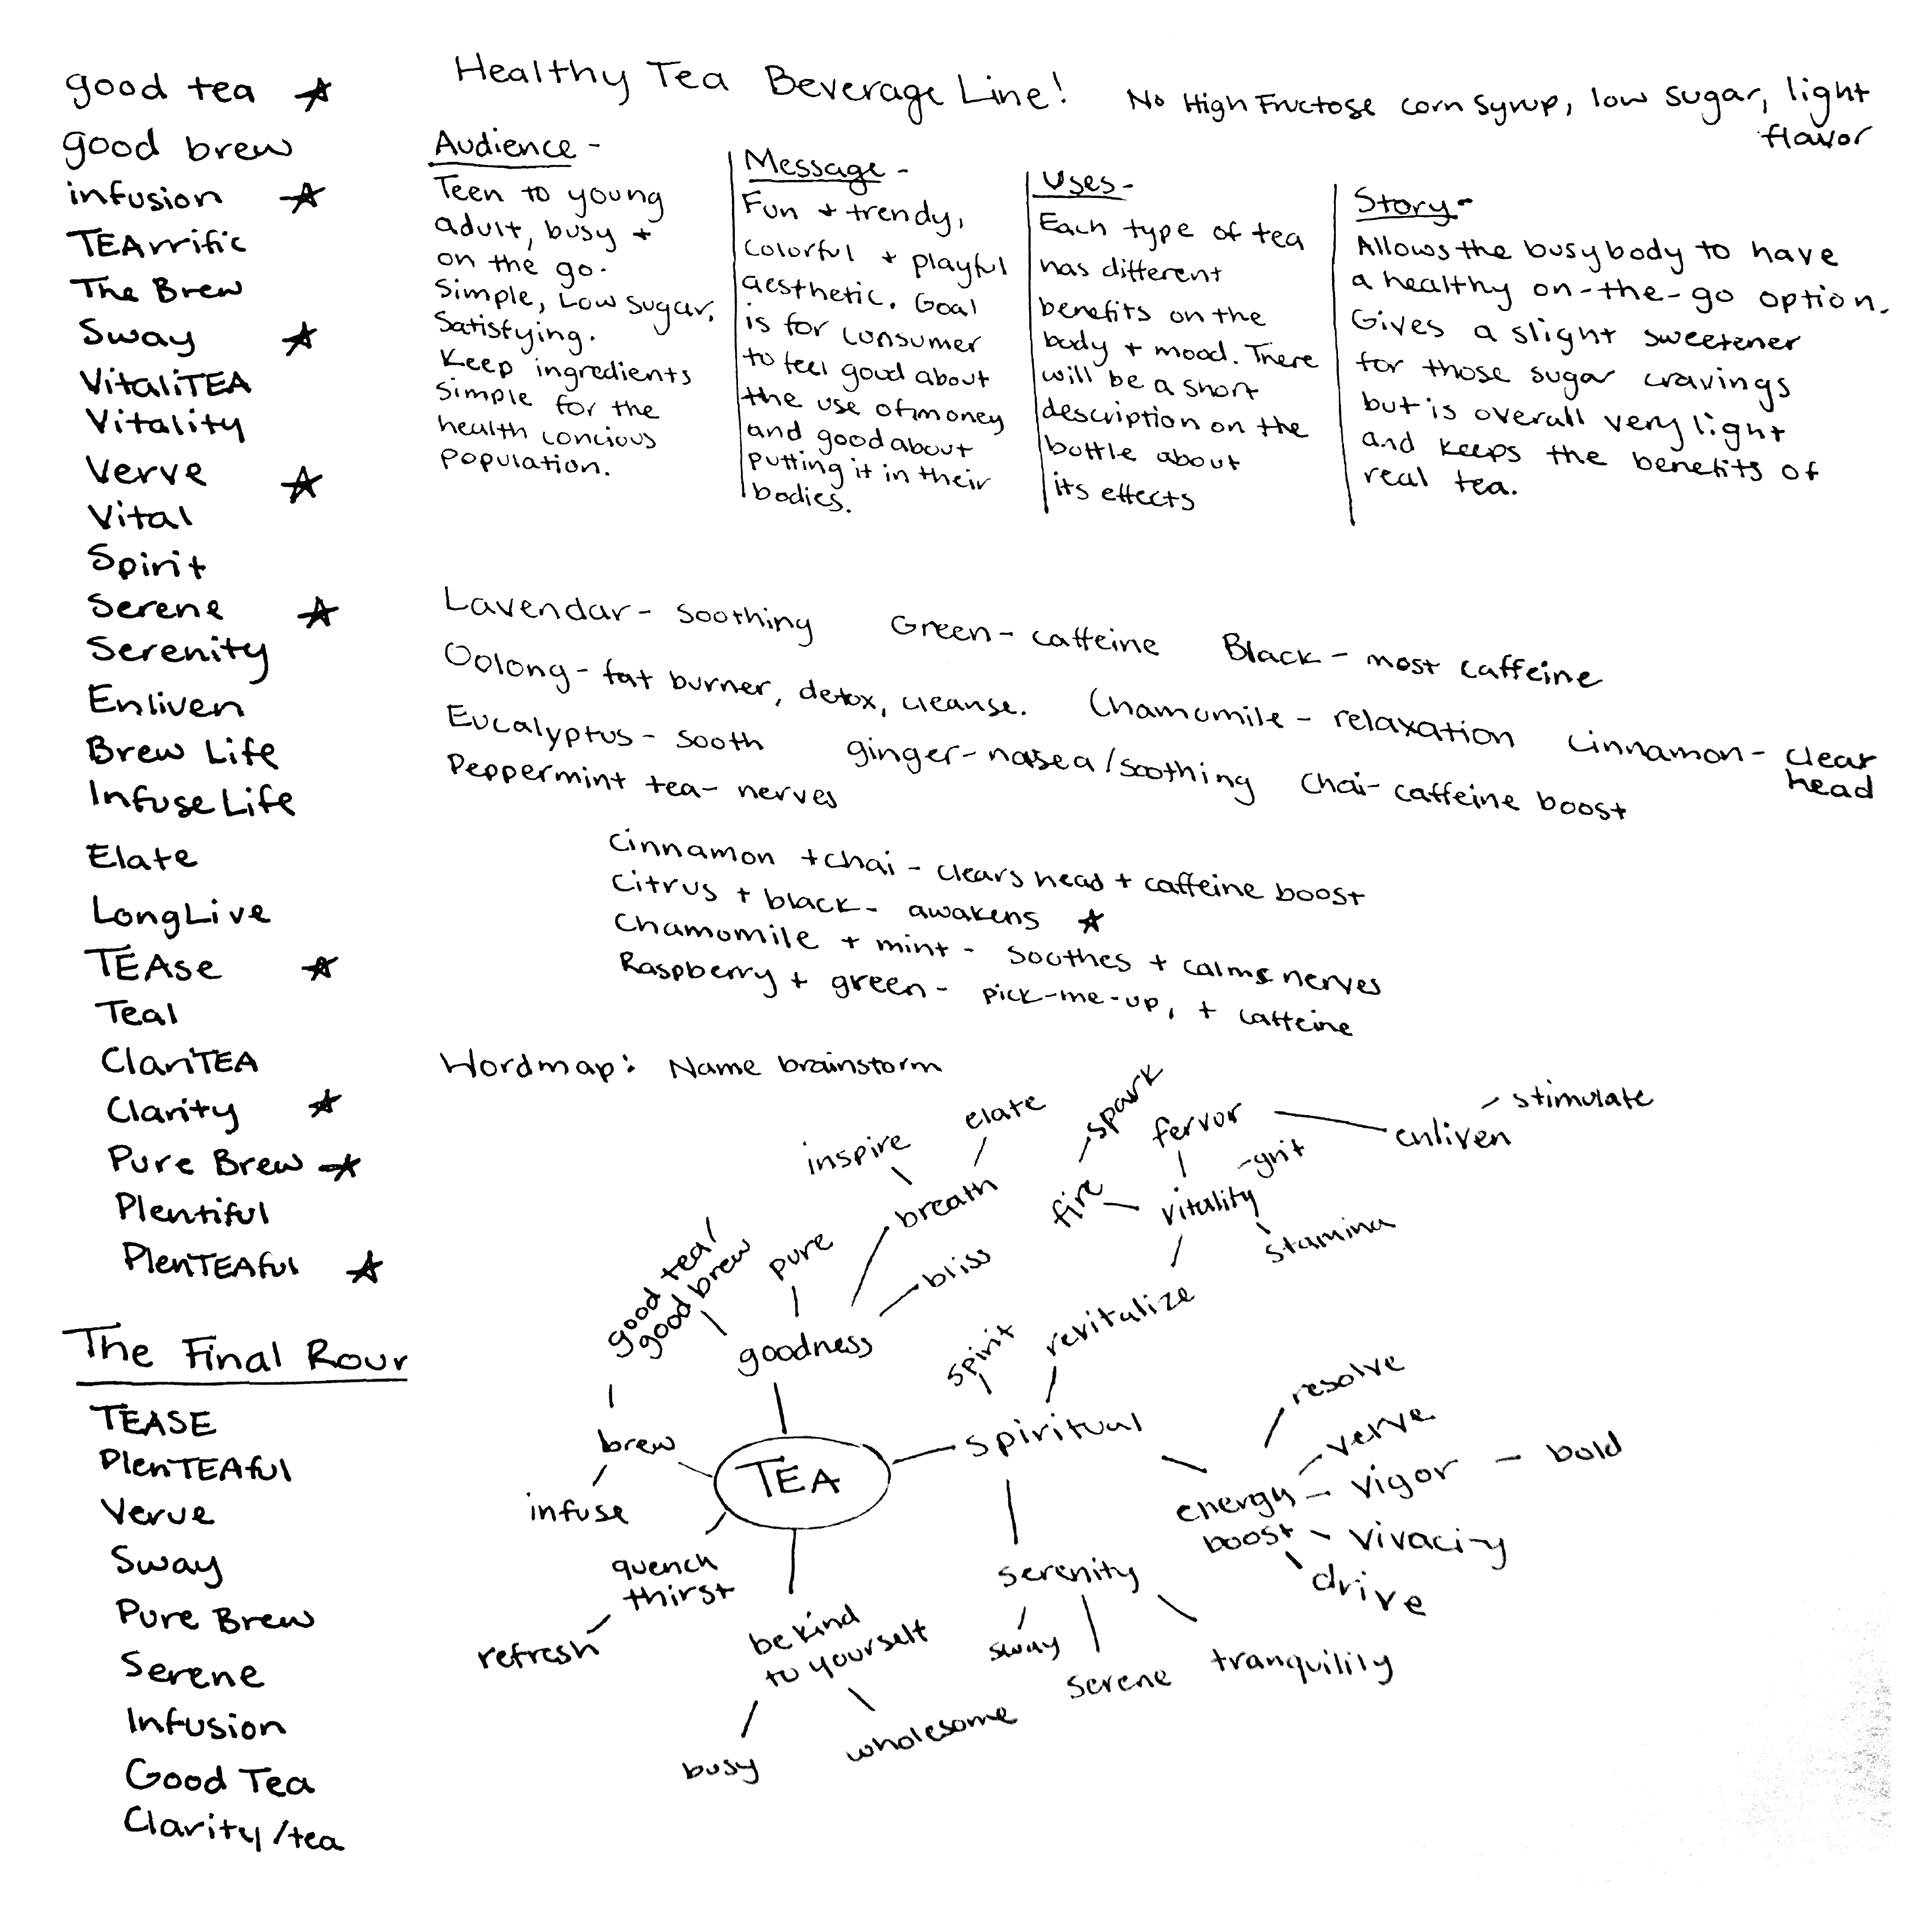 Healthy Tea Beverage Line! No High Fructose corn syrup, low sugar, light
flavor
good tea ☆
good brew
infusion ☆
TEArrific
The Brew
Sway ☆
VitaliTEA
Vitality
Verve ☆
Vital
Spirit
Serene ☆
Serenity
Enliven
Brew Life
Infuse Life
Elate
LongLive
TEAse ☆
Teal
ClariTEA
Clarity ☆
Pure Brew ☆
Plentiful
PlenTEAful ☆
The Final Four
TEASE
PlenTEAful
Verve
Sway
Pure Brew
Serene
Infusion
Good Tea
Clarity/tea
Audience -
Teen to young
adult, busy +
on the go.
Simple, Low sugar,
Satisfying.
Keep ingredients
simple for the
health concious
population.
Message -
Fun + trendy,
colorful + playful
aesthetic. Goal
is for consumer
to feel good about
the use of money
and good about
putting it in their
bodies.
Uses -
Each type of tea
has different
benefits on the
body + mood. There
will be a short
description on the
bottle about
its effects
Story -
Allows the busybody to have
a healthy on-the-go option.
Gives a slight sweetener
for those sugar cravings
but is overall very light
and keeps the benefits of
real tea.
Lavendar - soothing Green - caffeine Black - most caffeine
Oolong - fat burner, detox, cleanse. Chamomile - relaxation Cinnamon - clear
head
Eucalyptus - sooth ginger - nasea/soothing Chai - caffeine boost
Peppermint tea - nerves
Cinnamon + chai - clears head + caffeine boost
Citrus + black - awakens ☆
Chamomile + mint - soothes + calms nerves
Raspberry + green - pick-me-up, + caffeine
Wordmap: Name brainstorm
TEA
goodness
good tea/
good brew
pure
breath
inspire
elate
bliss
brew
infuse
quench
thirst
refresh
be kind
to yourself
busy
wholesome
spiritual
spirit
revitalize
vitality
fire
spark
fervor
grit
stamina
enliven
stimulate
energy
boost
resolve
verve
vigor
bold
vivacity
drive
serenity
sway
serene
tranquilily